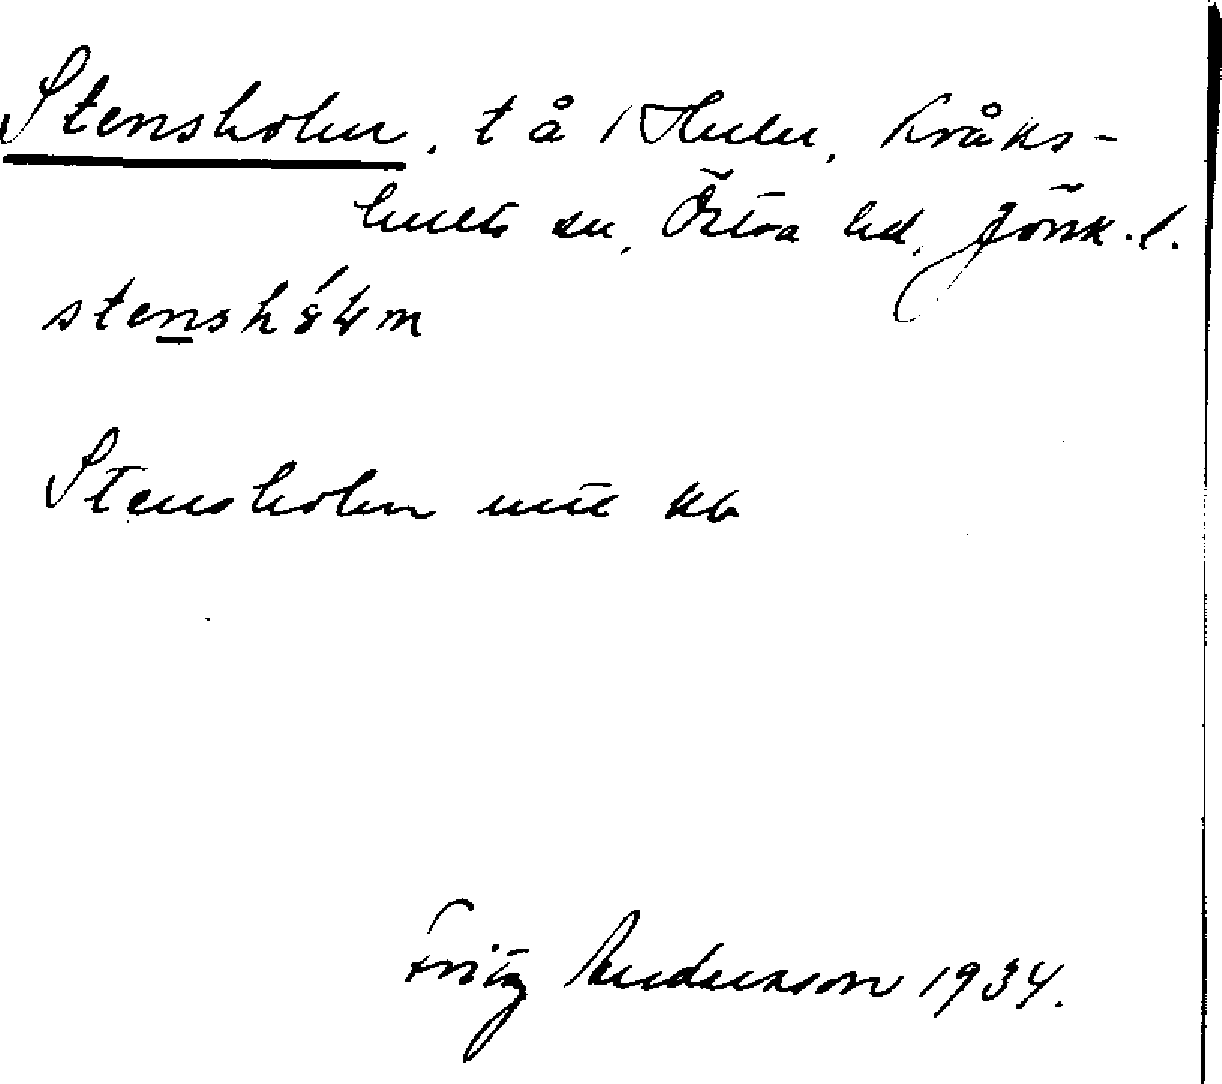 Stensholm, t å 1 Hulu, Kråks-
hults sn, Östra hd, Jönk. l.
stensh
Stensholm
Fritz Anderson 1934.